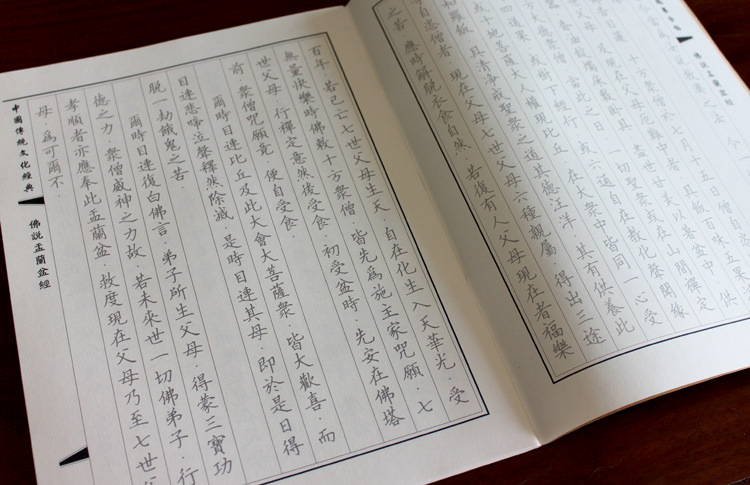 佛說盂蘭盆經
救濟之法
十方眾僧於七月十五
父母厄難中者 具飯百味五果
盡世甘美以著盆中 供
當此之日 一切聖眾或在山間禪定
四道果 或樹下經行 或六通自在教化聲聞緣
或十地菩薩大人權現比丘 在大眾中皆同一心受
和羅飯 具清淨戒聖眾之道其德汪洋 其有供養此
自恣僧者 現在父母七世父母六種親屬 得出三途
之苦 應時解脫衣食自然 若復有人父母現在者福樂
百年 若已亡七世父母生天 自在化生入天華光 受
無量快樂時佛敕十方眾僧 皆先為施主家咒願 七
世父母 行禪定意然後受食 初受盆時 先安在佛塔
前 眾僧咒願竟 便自受食
爾時目連比丘及此大會大菩薩眾 皆大歡喜 而
目連悲啼泣聲釋然除滅 是時目連其母 即於是日得
脫一劫餓鬼之苦
爾時目連復白佛言 弟子所生父母 得蒙三寶功
德之力 眾僧威神之力故 若未來世一切佛弟子 行
孝順者亦應奉此盂蘭盆 救度現在父母乃至七世父
母 為可爾不
中國傳統文化經典
佛說盂蘭盆經